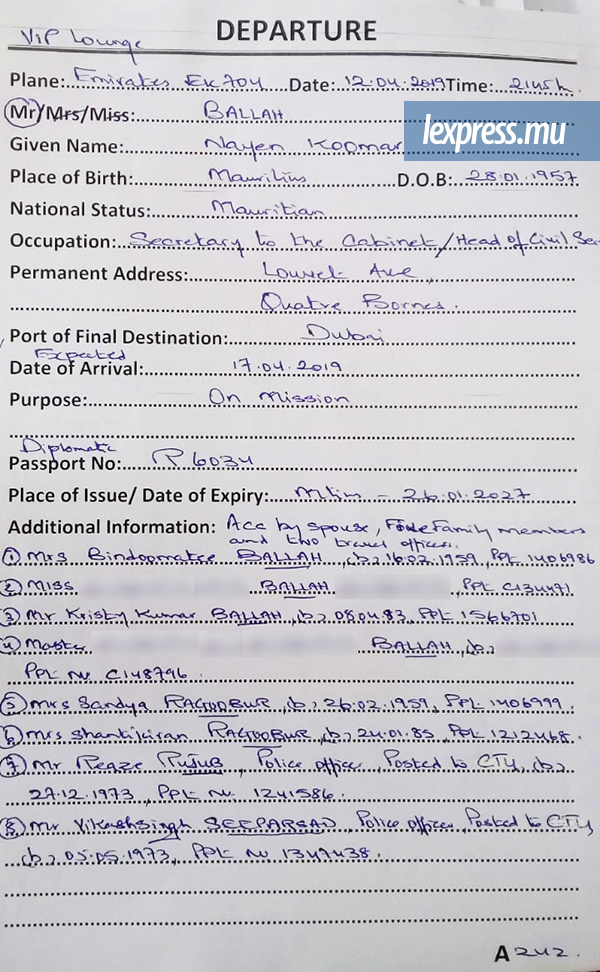 DEPARTURE
VIP Lounge
Plane: Emirates EK704 Date: 12.04.2019 Time: 2145h.
Mr/Mrs/Miss: BALLAH
lexpress.mu
Given Name: Nayen Koomar
Place of Birth: Mauritius D.O.B: 28.01.1957
National Status: Mauritian
Occupation: Secretary to the Cabinet/Head of Civil Se
Permanent Address: Louvet Ave,
Quatre Bornes.
Port of Final Destination: Dubai
Expected
Date of Arrival: 17.04.2019
Purpose: On Mission
Diplomatic
Passport No: P 6034
Place of Issue/ Date of Expiry: Mtius - 26.01.2027
Additional Information: Acc by spouse, Family members
and two officers.
① Mrs Bindoomatee BALLAH, (b) 16.02.1959, PPt 1406986
② MISS BALLAH, PPt C134471
③ Mr Kristy Kumar BALLAH, (b) 080483, PPt 1566701
④ Master BALLAH, (b)
PPt No C148796.
⑤ Mrs Sandya RAGOOBUR, (b) 26.02.1959, PPt 1406999.
⑥ Mrs Shantikiran RAGOOBUR, (b) 24.01.85, PPt 1212468.
⑦ Mr Reaze RUJUB, Police officer, Posted to CTU, (b)
27.12.1973, PPt no. 1241586.
⑧ Mr Vikashsingh SEEPARSAD, Police officer, Posted to CTU,
(b) 05.05.1973, PPt no 1347438.
A 242.